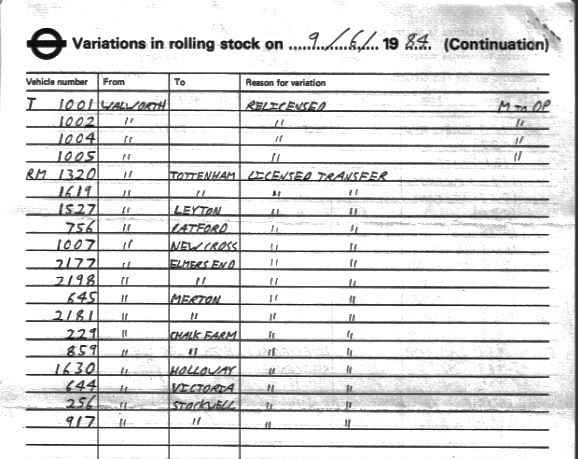 Variations in rolling stock on 9/6/ 1984. (Continuation)
Vehicle number From To Reason for variation
T 1001 WALWORTH RELICENSED M to OP
1002 " " "
1004 " " "
1005 " " "
RM 1320 " TOTTENHAM LICENSED TRANSFER
1619 " " " "
1527 " LEYTON " "
756 " CATFORD " "
1007 " NEW CROSS " "
2177 " ELMERS END " "
2198 " " " "
645 " MERTON " "
2181 " " " "
229 " CHALK FARM " "
859 " " " "
1630 " HOLLOWAY " "
644 " VICTORIA " "
256 " STOCKWELL " "
917 " " " "